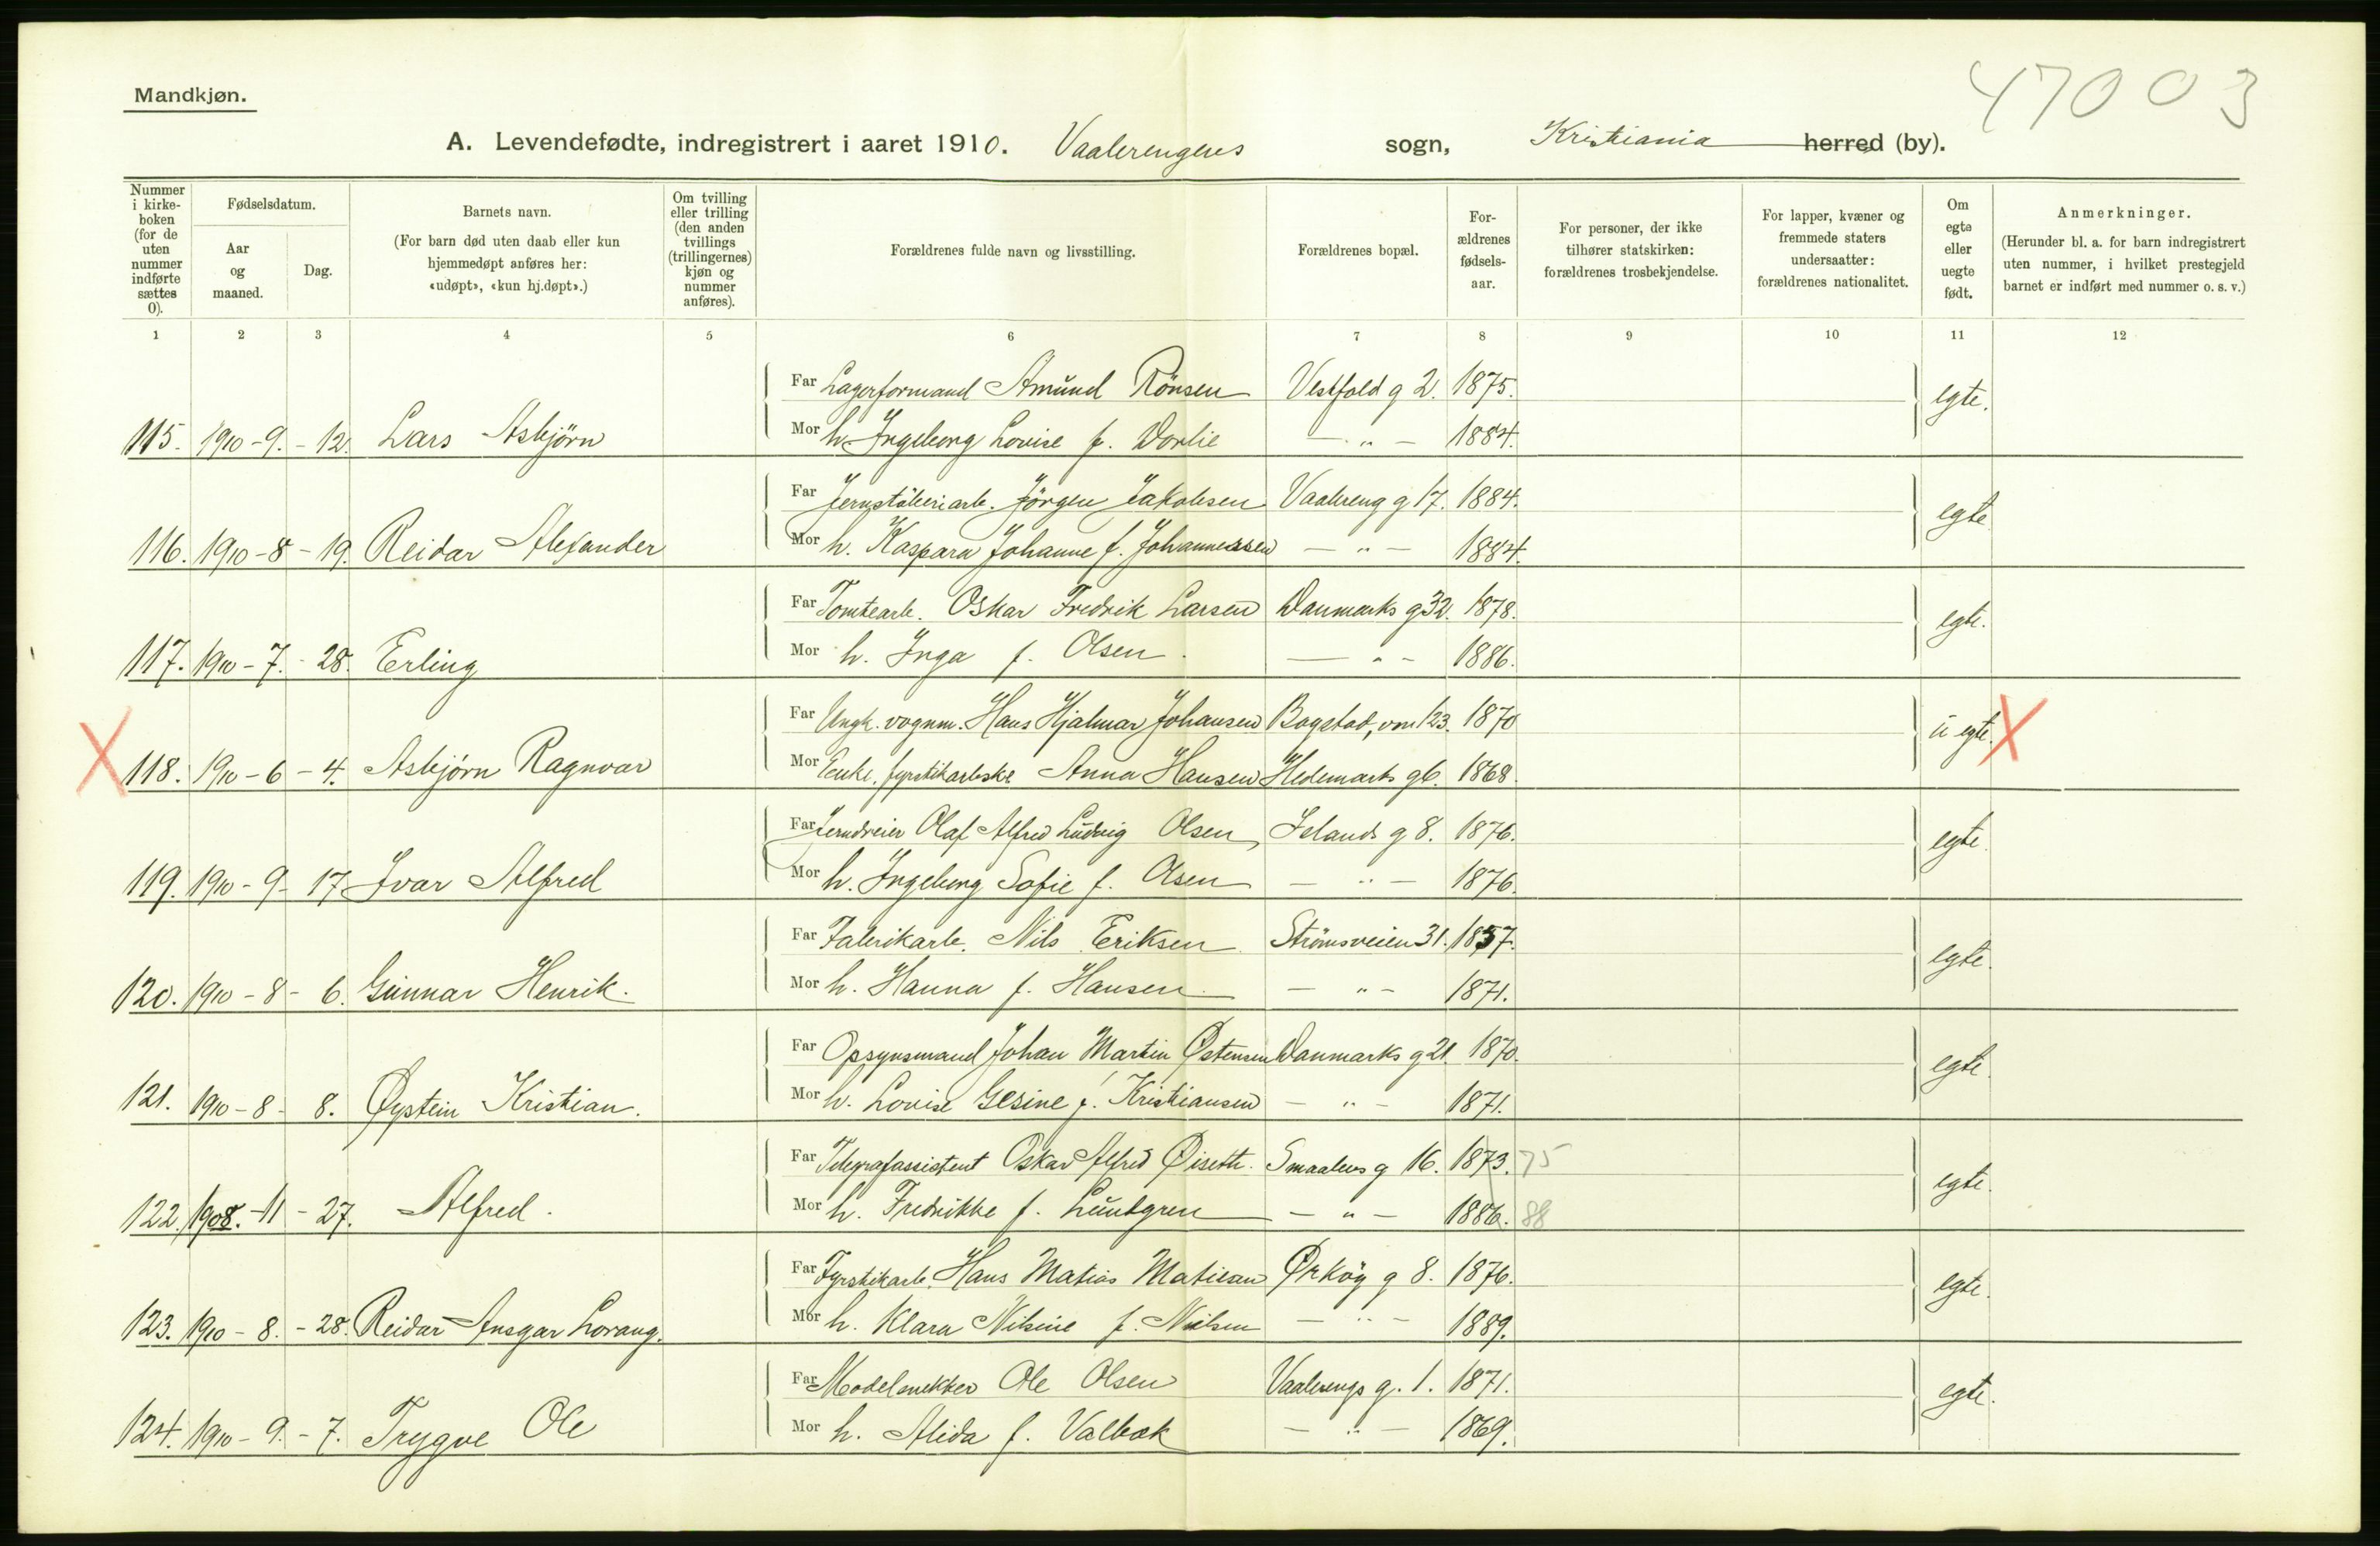 47003
Mandkjøn.
A. Levendefødte, indregistrert i aaret 1910. Vaalerengens sogn, Kristiania herred (by).
Nummer i kirkeboken (for de uten nummer indførte sættes 0).
Fødselsdatum.
Aar og maaned.
Dag.
Barnets navn.
(For barn død uten daab eller kun hjemmedøpt anføres her: «udøpt», «kun hj.døpt».)
Om tvilling eller trilling (den anden tvillings (trillingernes) kjøn og nummer anføres).
Forældrenes fulde navn og livsstilling.
Forældrenes bopæl.
Forældrenes fødselsaar.
For personer, der ikke tilhører statskirken: forældrenes trosbekjendelse.
For lapper, kvæner og fremmede staters undersaatter: forældrenes nationalitet.
Om egte eller uegte født.
Anmerkninger.
(Herunder bl. a. for barn indregistrert uten nummer, i hvilket prestegjeld barnet er indført med nummer o. s. v.)
1 2 3 4 5 6 7 8 9 10 11 12
Far Lagerformand Amund Rönsen Vestfold g 2. 1875. egte.
115. 1910-9.-12. Lars Asbjörn Mor h. Ingeborg Lovise f. Dorlie — „ — 1884.
Far Jernstöberiarb. Jörgen Jakobsen Vaalereng g 17. 1884. egte
116. 1910-8-19. Reidar Alexander Mor h. Kaspara Johanne f. Johannessen — „ — 1884.
Far Tomtearb. Oskar Fredrik Larsen Danmarks g 32. 1878. egte.
117. 1910-7.-28. Erling Mor h. Inga f. Olsen. — „ — 1886.
Far Ungk. vognm. Hans Hjalmar Johansen Bogstadv. 123. 1870 uegte.
X 118. 1910-6-4. Asbjörn Ragnvar Mor Enke. fyrstikarbske Anna Hansen Hedemarks g 6. 1868. X
Far Jerndreier Olaf Alfred Ludvig Olsen, Islands g 8. 1876. egte
119. 1910-9-17 Ivar Alfred Mor h. Ingeborg Sofie f. Olsen — „ — 1876.
Far Fabrikarb. Nils Eriksen Strömsveien 31. 1857. egte.
120. 1910-8-6. Gunnar Henrik. Mor h. Hanna f. Hansen — „ — 1871.
Far Opsynsmand Johan Martin Østensen Danmarks g 21. 1870. egte
121. 1910-8-8. Øystein Kristian. Mor h. Lovise Gesine f. Kristiansen — „ — 1871.
Far Telegrafassistent Oskar Alfred Øiseth. Smaalens g 16. 1873. 75 egte.
122. 1908.-11-27. Alfred. Mor h. Fredrikke f. Lundgren — „ — 1886. 88
Far Fyrstikarb. Hans Matias Matiesen Ørkög g 8. 1876. egte.
123. 1910-8.-28. Reidar Ansgar Lorang. Mor h. Klara Nilsine f. Nielsen — „ — 1889.
Far Modelsnekker Ole Olsen Vaalerengs g. 1. 1871. egte.
124. 1910-9.-7. Trygve Ole Mor h. Alida f. Valbæk — „ — 1869.